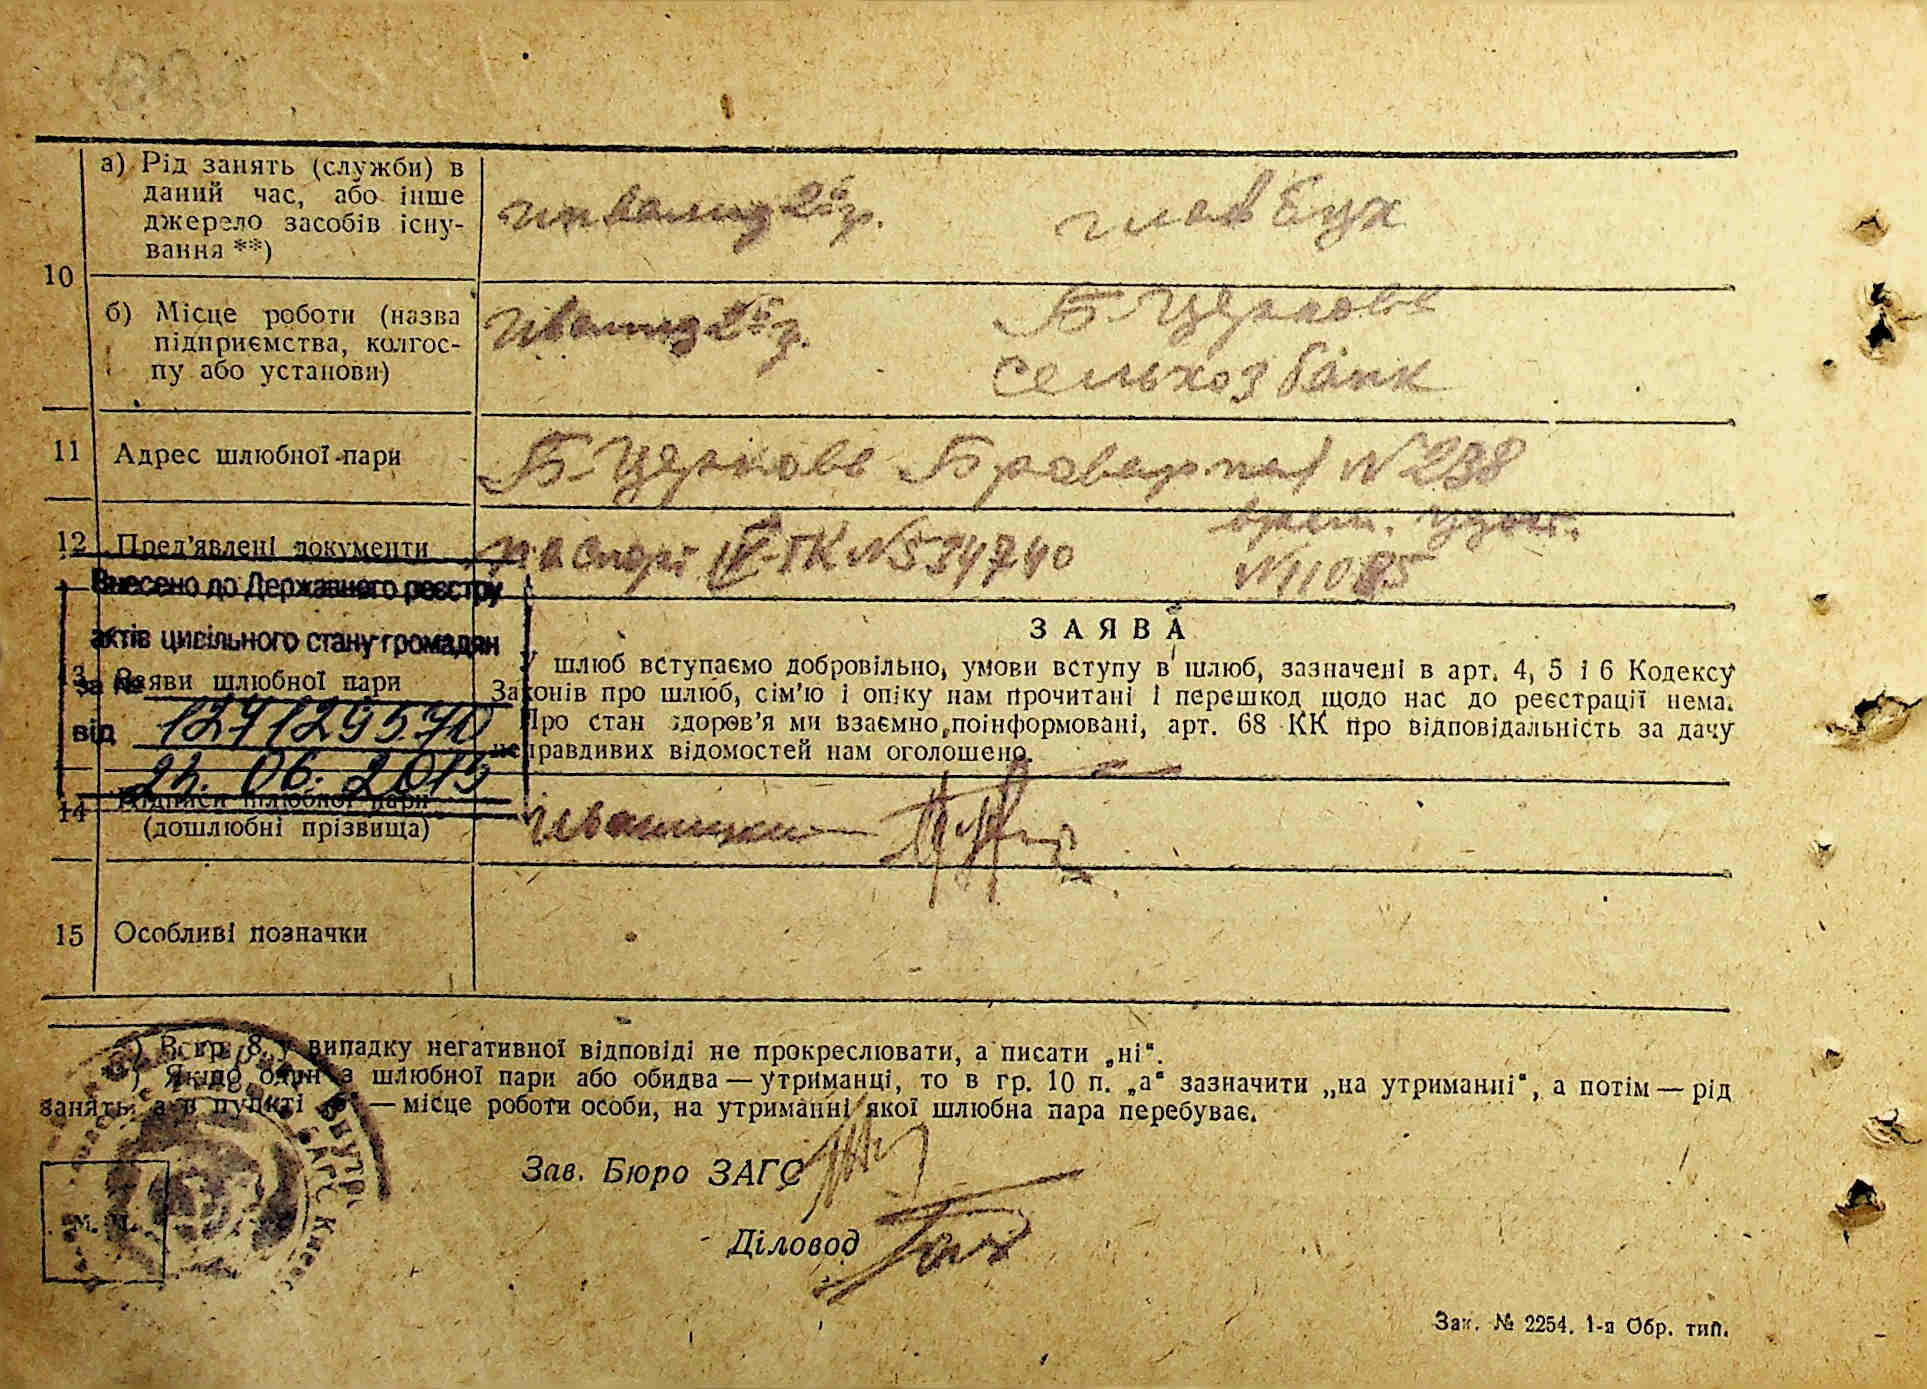 а) Рід занять (служби) в
даний час, або інше
джерело засобів існу-
вання **)
инвалид 2й гр.
главбух
10
б) Місце роботи (назва
підприємства, колгос-
пу або установи)
Б-Церковь
сельхозбанк
11
Адрес шлюбної пари
Б-Церковь № 238
12
Пред'явлені документи
паспорт ТК № 534740
№ 11085
Внесено до Державного реєстру
актів цивільного стану громадян
за №
1271295
від
06. 2015
13
Заяви шлюбної пари
ЗАЯВА
У шлюб вступаємо добровільно, умови вступу в шлюб, зазначені в арт. 4, 5 і 6 Кодексу
Законів про шлюб, сім'ю і опіку нам прочитані і перешкод щодо нас до реєстрації нема.
Про стан здоров'я ми взаємно поінформовані, арт. 68 КК про відповідальність за дачу
неправдивих відомостей нам оголошено.
14
Підписи шлюбної пари
(дошлюбні прізвища)
15
Особливі позначки
*) В гр. 8 у випадку негативної відповіді не прокреслювати, а писати „ні“.
**) Якщо один з шлюбної пари або обидва — утриманці, то в гр. 10 п. „а“ зазначити „на утриманні“, а потім — рід
занять, а в пункті „б“ — місце роботи особи, на утриманні якої шлюбна пара перебуває.
Зав. Бюро ЗАГС
Діловод
М. П.
Зак. № 2254. 1-я Обр. тип.